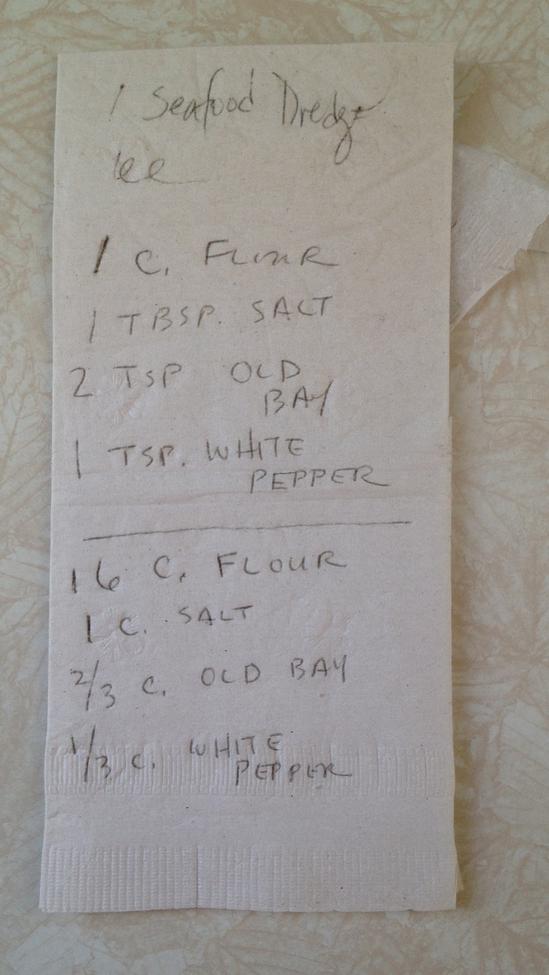 1 Seafood Dredge
1 C. FLOUR
1 TBSP. SALT
2 TSP OLD
BAY
1 TSP. WHITE
PEPPER
16 C. FLOUR
1 C. SALT
2/3 C. OLD BAY
1/3 C. WHITE
PEPPER